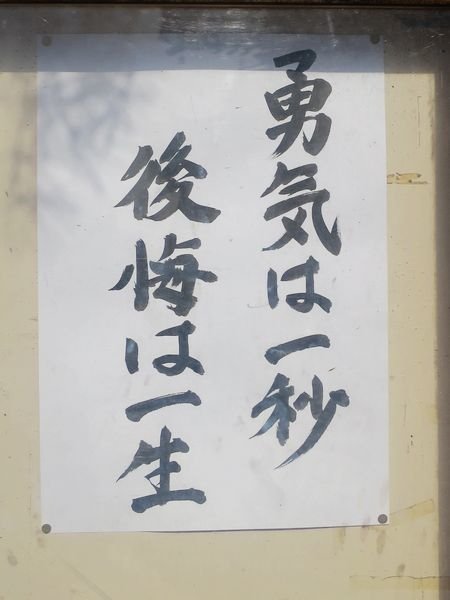 勇気は一秒
後悔は一生